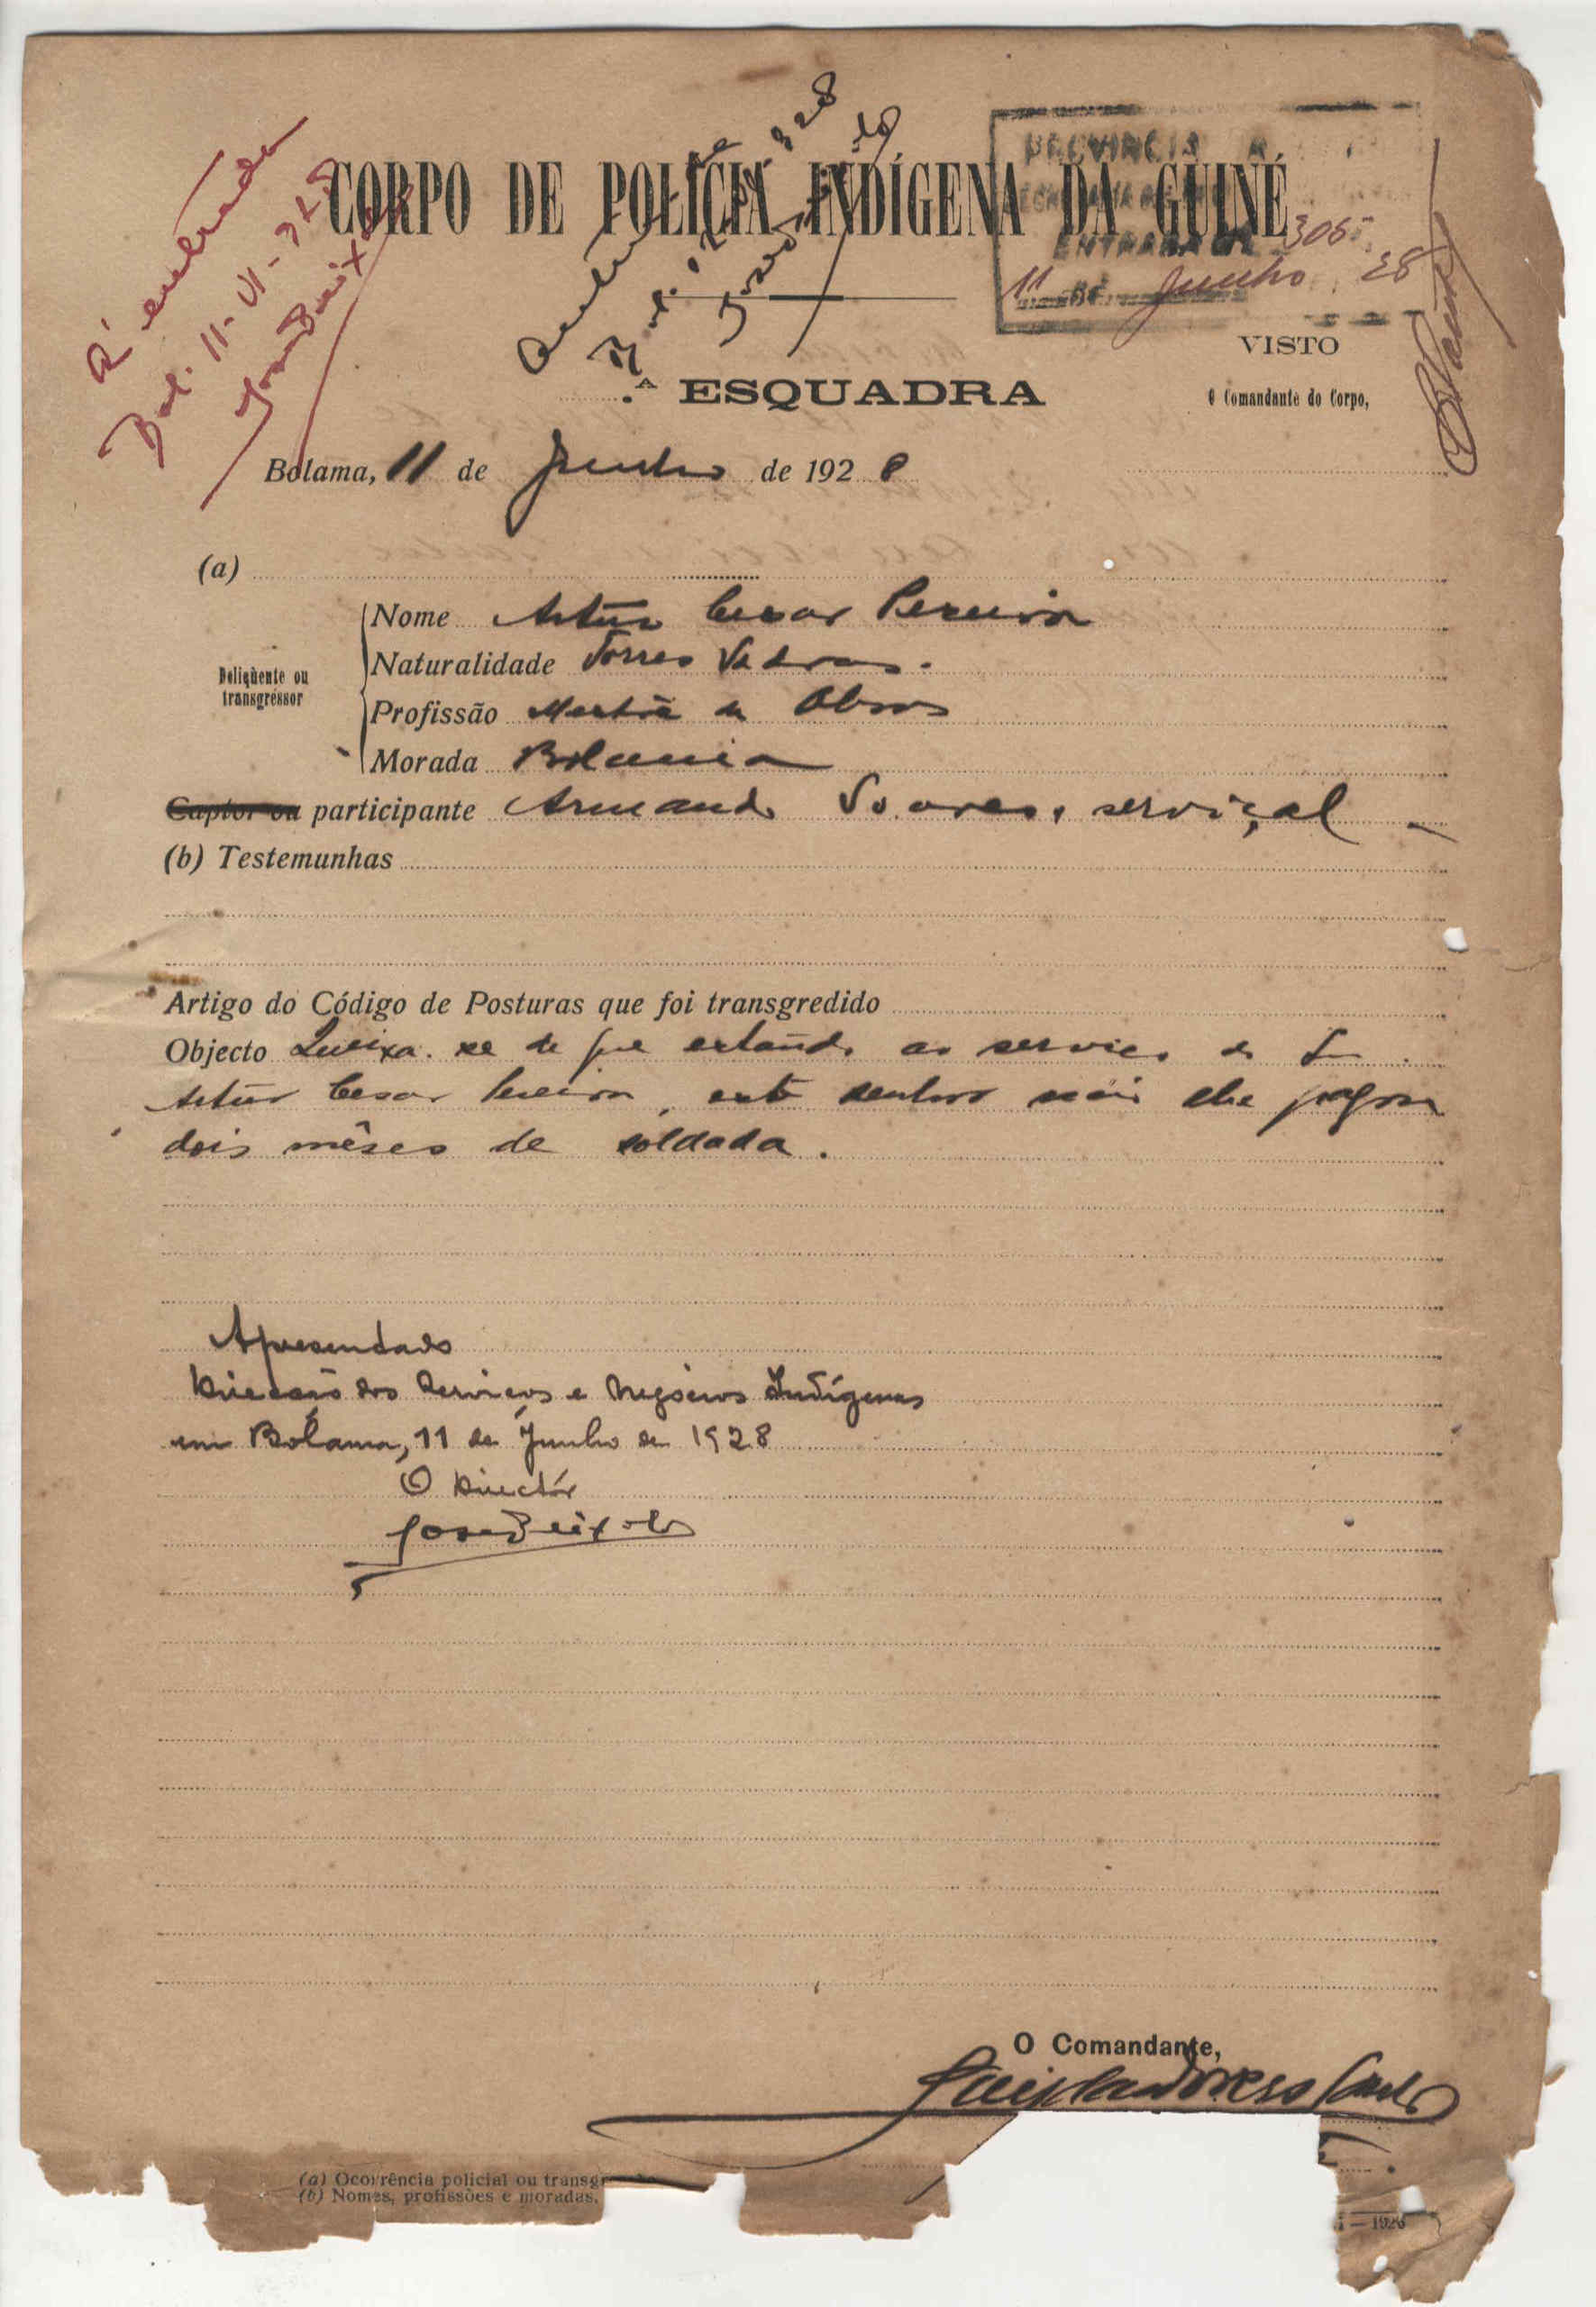 Á entrada
Bol. 11-VI-928
José Peixoto
CORPO DE POLÍCIA INDÍGENA DA GUINÉ
PROVINCIA
ENTRADA Nº 305
11 DE Junho 28
VISTO
O Comandante do Corpo,
.ª ESQUADRA
Bolama, 11 de Junho de 1928
(a)
Deliqüente ou transgressor
Nome Artur Cesar Pereira
Naturalidade Torres Vedras.
Profissão Mestre de Obras
Morada Bolama
Captor ou participante Armando Soares, serviçal
(b) Testemunhas
Artigo do Código de Posturas que foi transgredido
Objecto Queixa-se de que estando ao serviço do Sr.
Artur Cesar Pereira, este senhor não lhe pagou
dois mêses de soldada.
Apresentado
Direcção dos Serviços e Negócios Indígenas
em Bolama, 11 de Junho de 1928
O Directór
José Peixoto
O Comandante,
(a) Ocorrência policial ou transgr
(b) Nomes, profissões e moradas.
— 1926